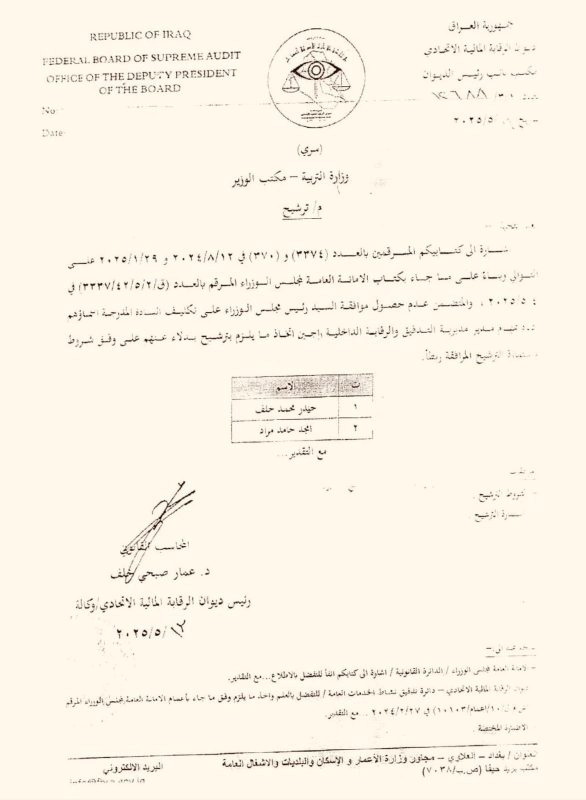 REPUBLIC OF IRAQ
FEDERAL BOARD OF SUPREME AUDIT
OFFICE OF THE DEPUTY PRESIDENT
OF THE BOARD
No:
Date:
جمهورية العراق
ديوان الرقابة المالية الاتحادي
مكتب نائب رئيس الديوان
(سري)
وزارة التربية – مكتب الوزير
م/ ترشيح
اشارة الى كتابيكم المرقمين بالعدد (٣٣٧٤) و (٣٧٠) في ٢٠٢٤/٨/١٢ و ٢٠٢٥/١/٢٩ على
التوالي وبناءً على ما جاء بكتاب الامانة العامة لمجلس الوزراء المرقم بالعدد (ق/٣٣٣٧/٤٢/٥/٢) في
٢٠٢٥/٥ ، والمتضمن عدم حصول موافقة السيد رئيس مجلس الوزراء على تكليف السادة المدرجة اسماؤهم
مدير مديرية التدقيق والرقابة الداخلية راجين اتخاذ ما يلزم بترشيح بدلاء عنهم على وفق شروط
الترشيح المرافقة ربطاً.
ت الاسم
١ حيدر محمد خلف
٢ امجد حامد مراد
مع التقدير...
شروط الترشيح .
الترشيح .
المحاسب القانوني
د. عمار صبحي خلف
رئيس ديوان الرقابة المالية الاتحادي/وكالة
٢٠٢٥/٥/١٢
الامانة العامة لمجلس الوزراء / الدائرة القانونية / اشارة الى كتابكم انفاً للتفضل بالاطلاع...مع التقدير.
ديوان الرقابة المالية الاتحادي – دائرة تدقيق نشاط الخدمات العامة / للتفضل بالعلم واتخاذ ما يلزم وفق ما جاء بأعمام الامانة العامة لمجلس الوزراء المرقم
في ٢٠٢٤/٢/٢٧ ...مع التقدير.
الاضبارة المختصة .
العنوان / بغداد – العلاوي – مجاور وزارة الأعمار و الإسكان والبلديات والاشغال العامة
البريد الالكتروني
مكتب بريد حيفا (ص.ب/٧٠٣٨)